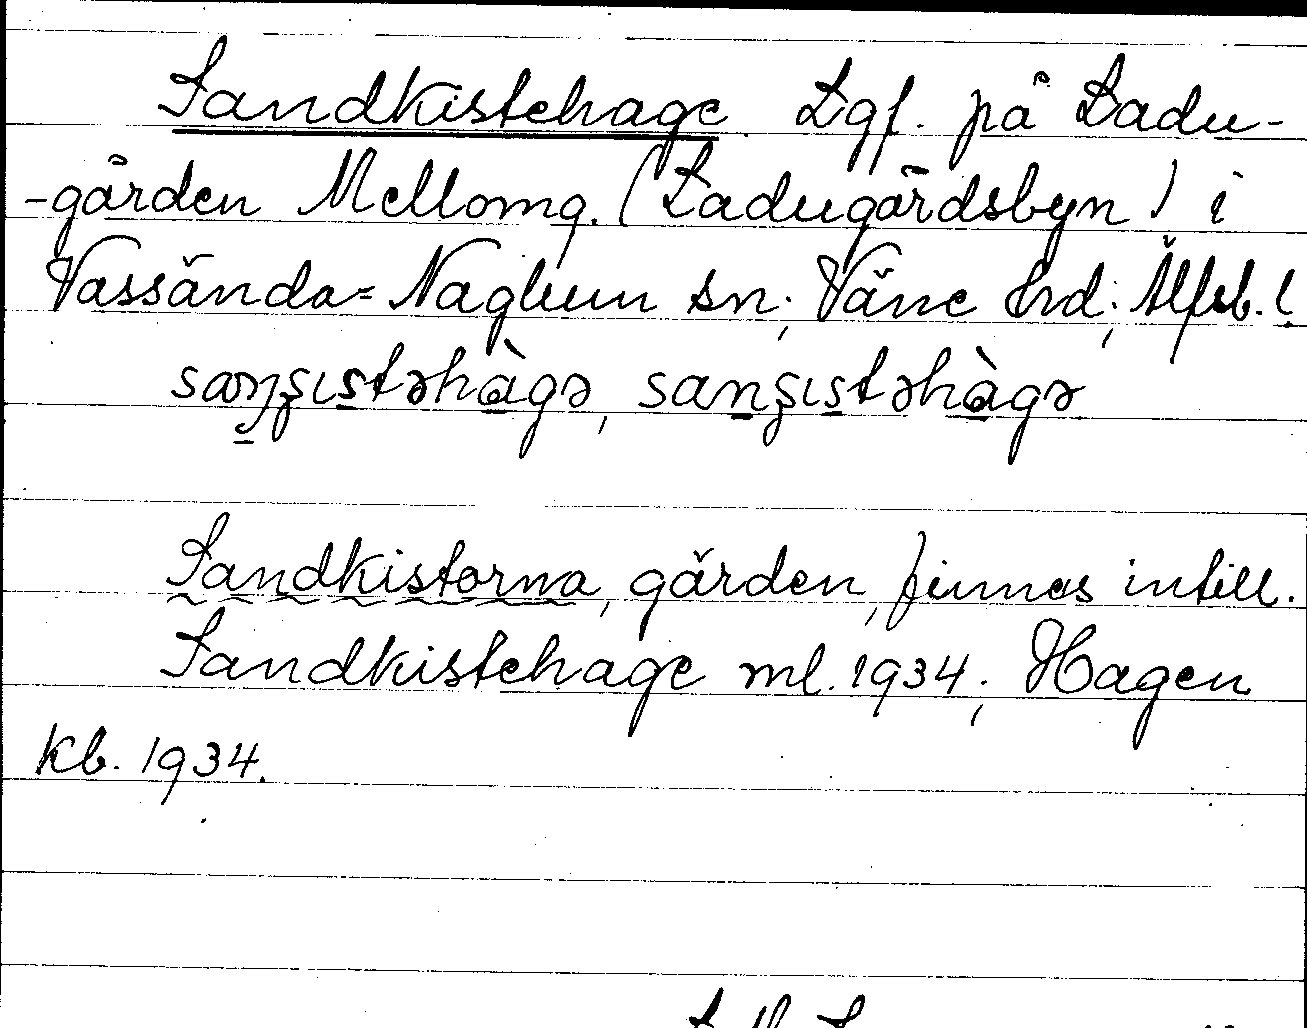 Sandkistehage Lgf. på Ladu-
-gården Mellomg. (Ladugårdsbyn) i
Vassända=Naglum sn; Väne hrd; Älfsb. l.
saŋʂɩstəhàgə, sanʂɩstəhàgə
Sandkistorna, gården, finnes intill.
Sandkistehage ml. 1934; Hagen
kb. 1934.